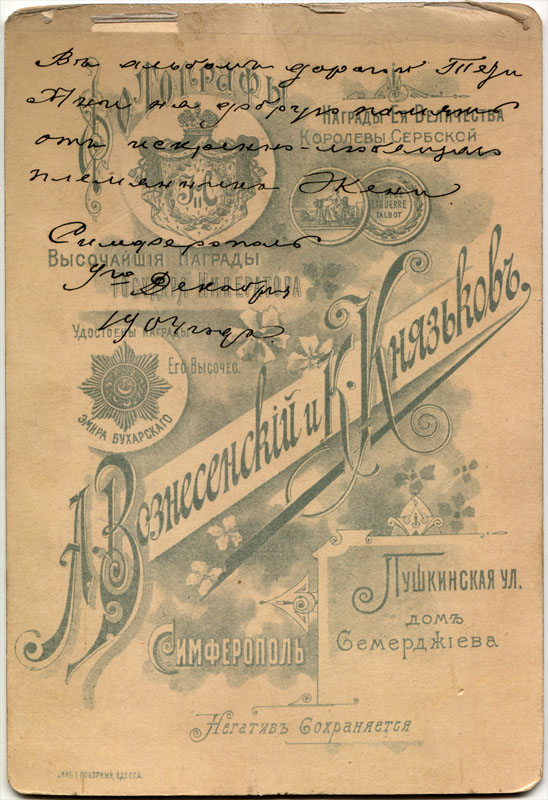 Въ альбомъ дорогой Тети
Ани на добрую память
отъ искренно-любящаго
племянника Жени.
Симферополь
9го Декабря
1904 года.
Фотографы
Награды Ея Величества
Королевы Сербской
Высочайшія Награды
Государя Императора
Удостоены награды
Его Высочес.
Эмира Бухарскаго
А. Вознесенскій и К. Князьковъ
Симферополь
Пушкинская ул.
домъ
Семерджіева
Негативъ Сохраняется